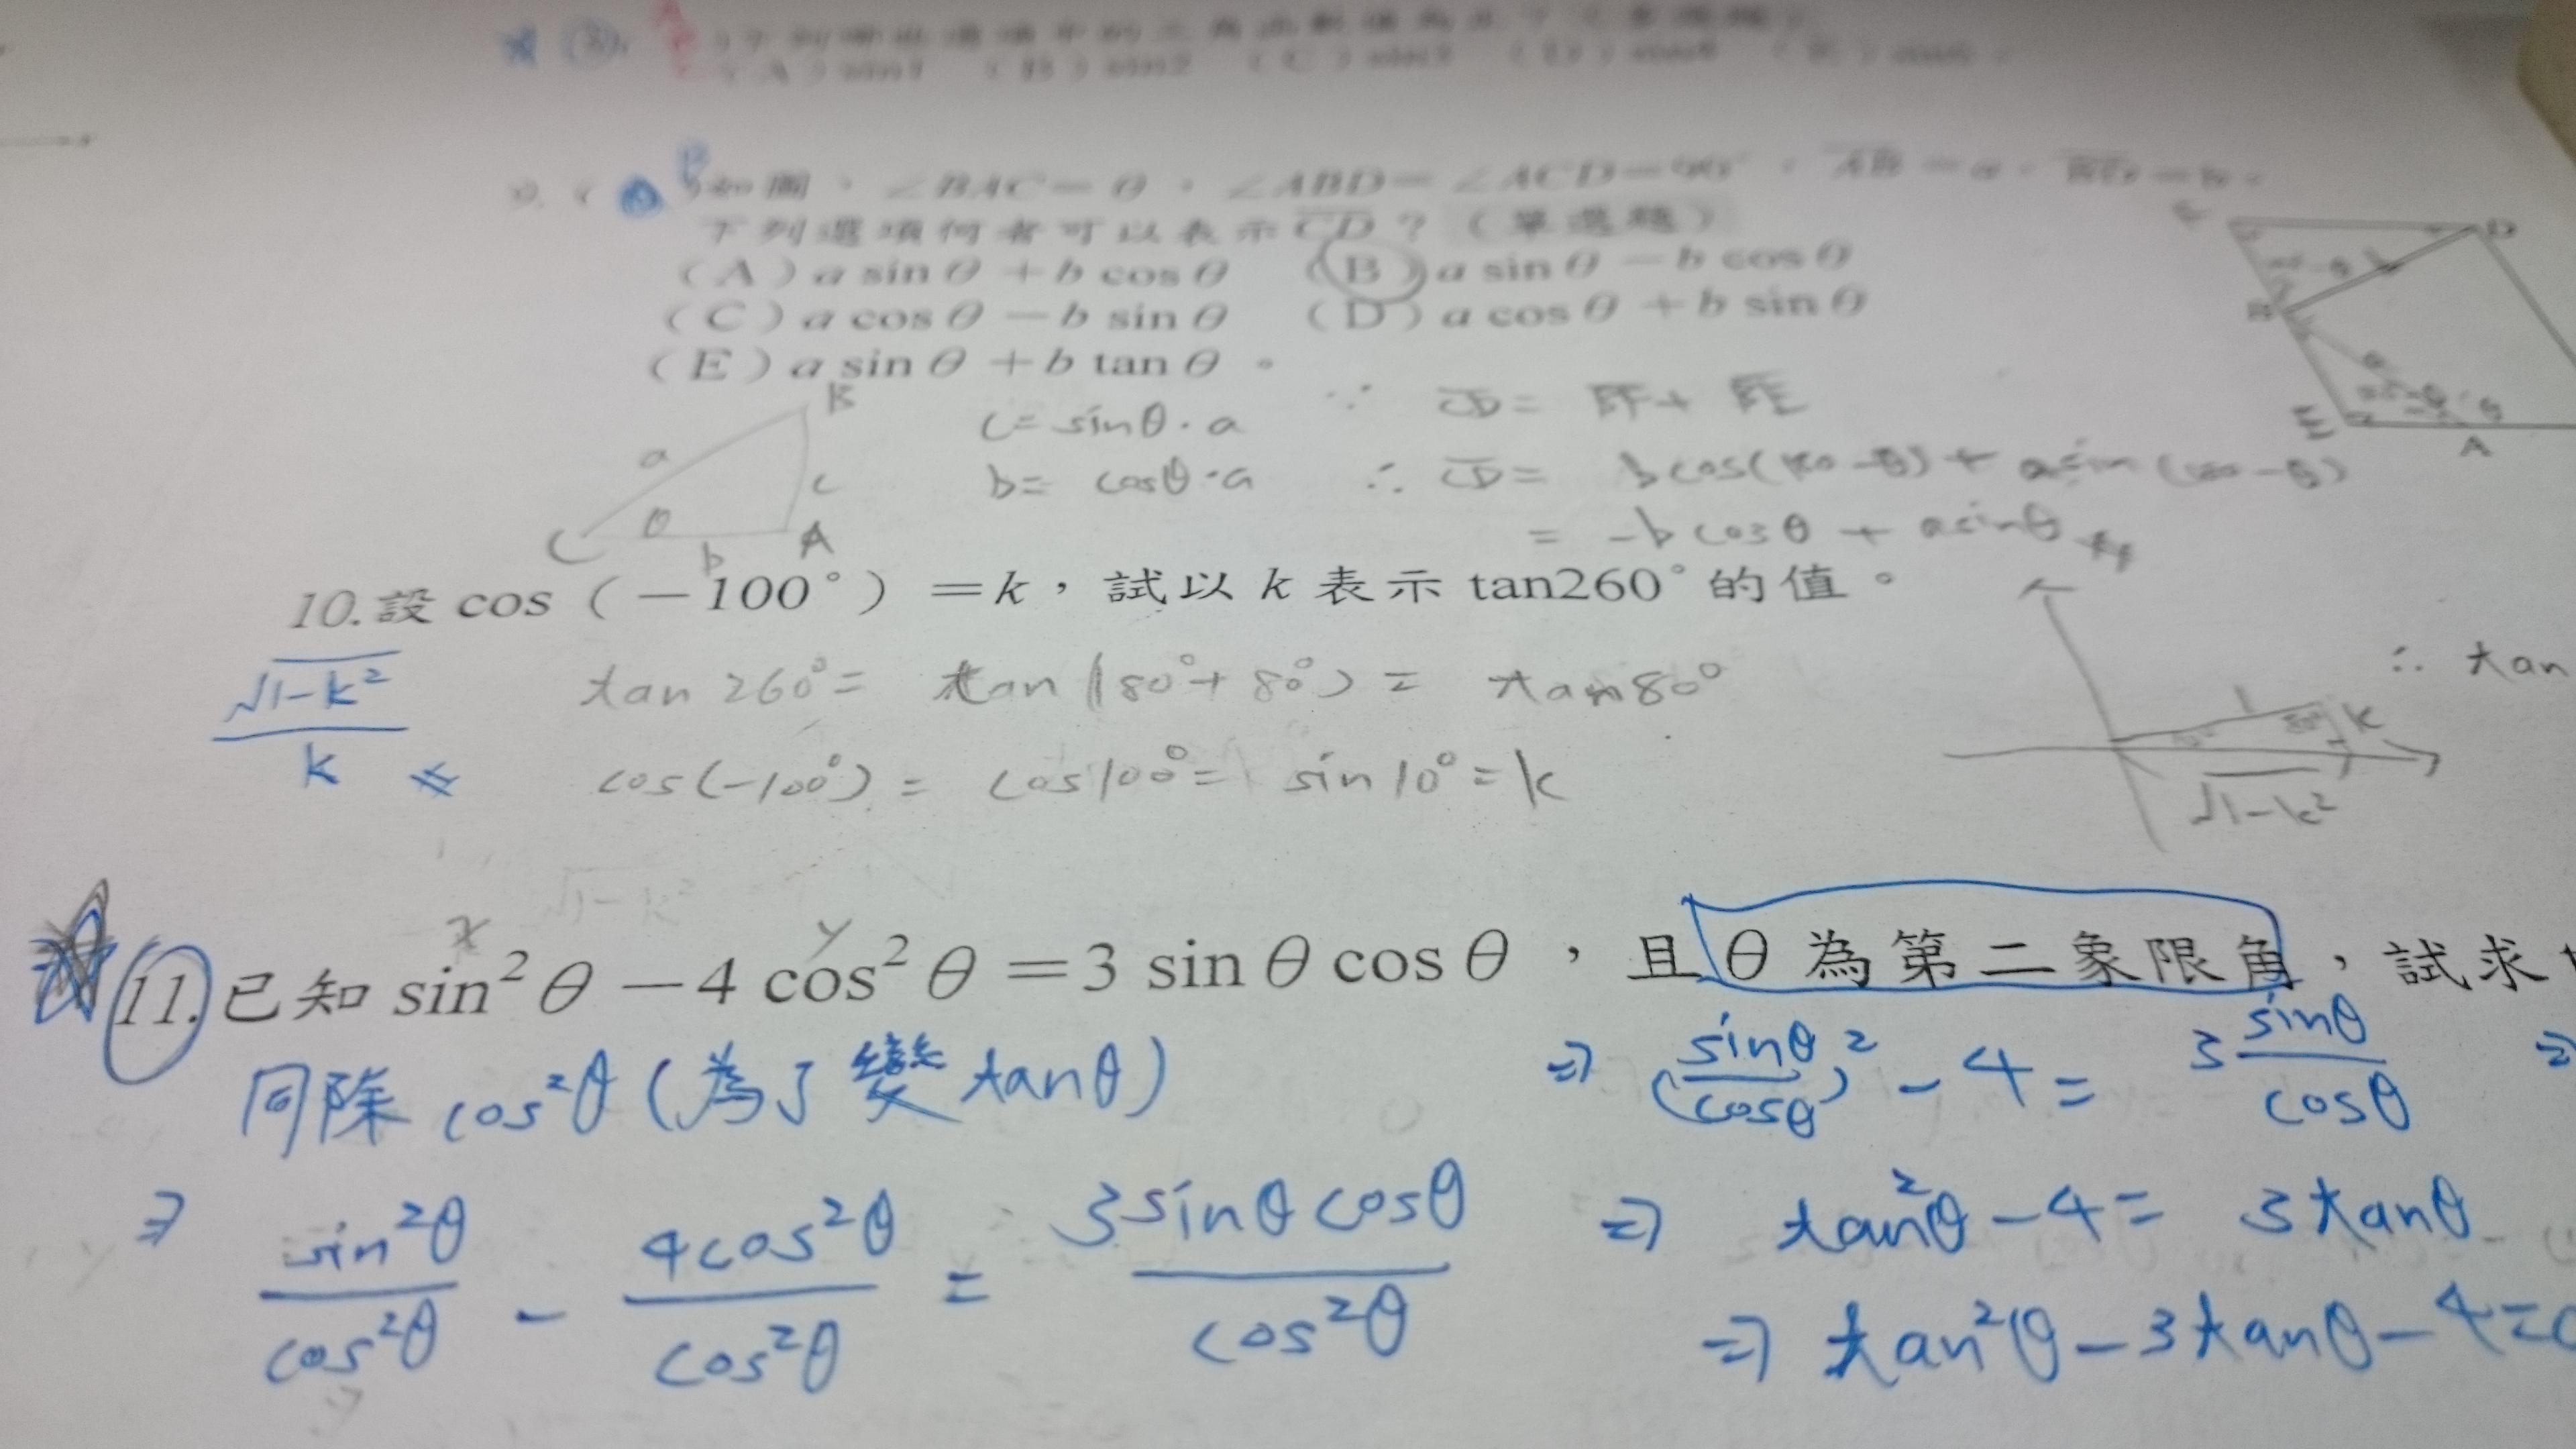 9. 如圖，∠BAC=θ，∠ABD=∠ACD=90°，AB=a，BD=b，
下列選項何者可以表示CD？（單選題）
（A）a sinθ+b cosθ （B）a sinθ−b cosθ
（C）a cosθ−b sinθ （D）a cosθ+b sinθ
（E）a sinθ+b tanθ。
B
a
c
θ
C
b
A
c=sinθ·a
b=cosθ·a
∴ CD= b cos(180-θ)+ a sin(180-θ)
= -b cosθ + a sinθ
D
B
E
A
10.設cos（−100°）=k，試以k表示tan260°的值。
√1-k²
k
tan260°= tan(180°+80°)= tan80°
cos(-100°)= cos100°= sin10°=k
∴ tan
1
k
√1-k²
√1-k²
x
y
11.已知sin²θ−4 cos²θ=3 sinθ cosθ，且θ為第二象限角，試求
同除 cos²θ(為了變 tanθ)
⇒ sin²θ/cos²θ - 4cos²θ/cos²θ = 3sinθcosθ/cos²θ
⇒ (sinθ/cosθ)² - 4 = 3 sinθ/cosθ ⇒
⇒ tan²θ-4= 3tanθ
⇒ tan²θ-3tanθ-4=0